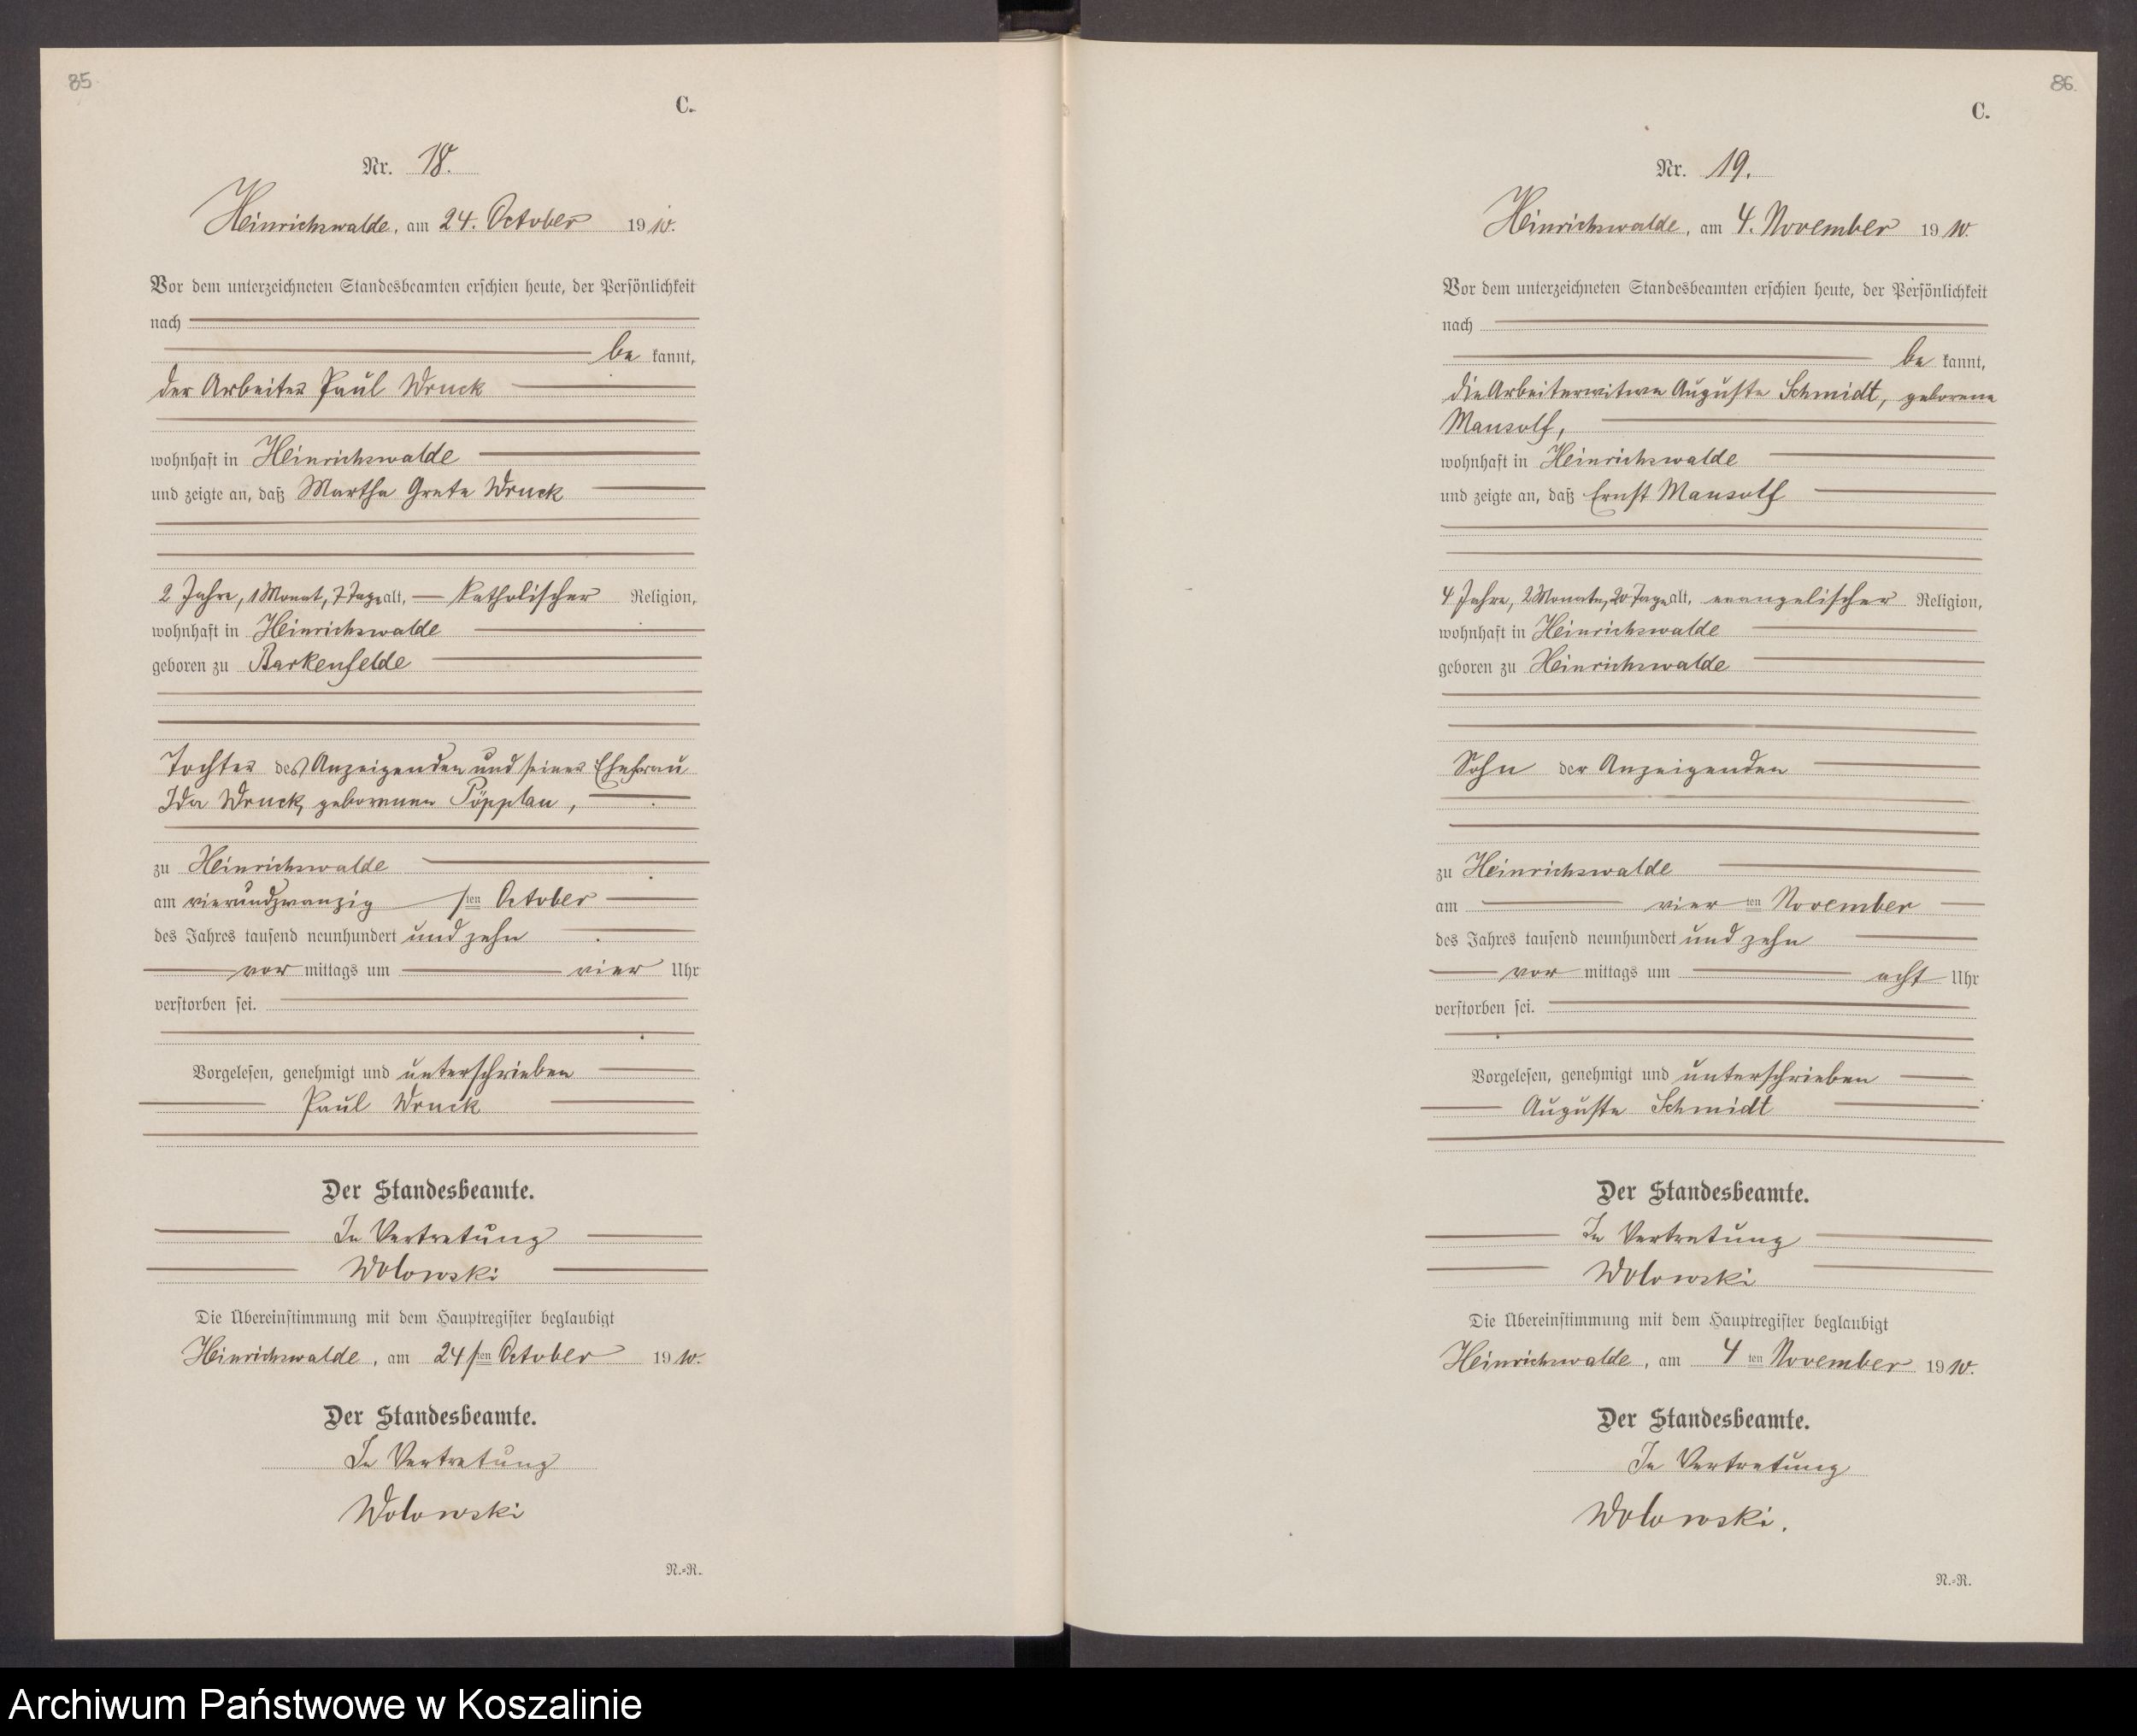 85
C.
Nr. 18.
Heinrichswalde, am 24. October 1910.
Vor dem unterzeichneten Standesbeamten erschien heute, der Persönlichkeit
nach
be kannt,
der Arbeiter Paul Wruck
wohnhaft in Heinrichswalde
und zeigte an, daß Martha Grete Wruck
2 Jahre, 1 Monat, 7 Tage alt, katholischer Religion,
wohnhaft in Heinrichswalde
geboren zu Barkenfelde
Tochter des Anzeigenden und seiner Ehefrau
Ida Wruck, geborenen Pöpplau,
zu Heinrichswalde
am vierundzwanzig sten October
des Jahres tausend neunhundert und zehn
vor mittags um vier Uhr
verstorben sei.
Vorgelesen, genehmigt und unterschrieben
Paul Wruck
Der Standesbeamte.
In Vertretung
Wolowski
Die Übereinstimmung mit dem Hauptregister beglaubigt
Heinrichswalde, am 24 sten October 1910.
Der Standesbeamte.
In Vertretung
Wolowski
N.=R.
86.
C.
Nr. 19.
Heinrichswalde, am 4. November 1910.
Vor dem unterzeichneten Standesbeamten erschien heute, der Persönlichkeit
nach
be kannt,
die Arbeiterwitwe Auguste Schmidt, geborene
Mansolf,
wohnhaft in Heinrichswalde
und zeigte an, daß Ernst Mansolf
4 Jahre, 2 Monate, 20 Tage alt, evangelischer Religion,
wohnhaft in Heinrichswalde
geboren zu Heinrichswalde
Sohn der Anzeigenden
zu Heinrichswalde
am vier ten November
des Jahres tausend neunhundert und zehn
vor mittags um acht Uhr
verstorben sei.
Vorgelesen, genehmigt und unterschrieben
Auguste Schmidt
Der Standesbeamte.
In Vertretung
Wolowski
Die Übereinstimmung mit dem Hauptregister beglaubigt
Heinrichswalde, am 4 ten November 1910.
Der Standesbeamte.
In Vertretung
Wolowski.
N.=R.
Archiwum Państwowe w Koszalinie